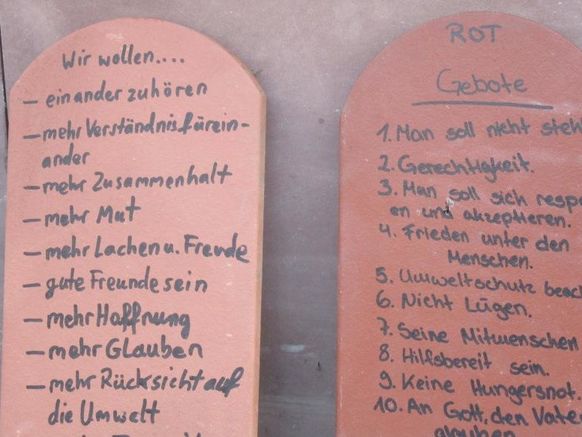 Wir wollen....
– einander zuhören
– mehr Verständnis fürein-
ander
– mehr Zusammenhalt
– mehr Mut
– mehr Lachen u. Freude
– gute Freunde sein
– mehr Hoffnung
– mehr Glauben
– mehr Rücksicht auf
die Umwelt
ROT
Gebote
1. Man soll nicht steh
2. Gerechtigkeit.
3. Man soll sich resp
en und akzeptieren.
4. Frieden unter den
Menschen.
5. Umweltschutz beac
6. Nicht Lügen.
7. Seine Mitmenschen
8. Hilfsbereit sein.
9. Keine Hungersnot.
10. An Gott, den Vate
glauben